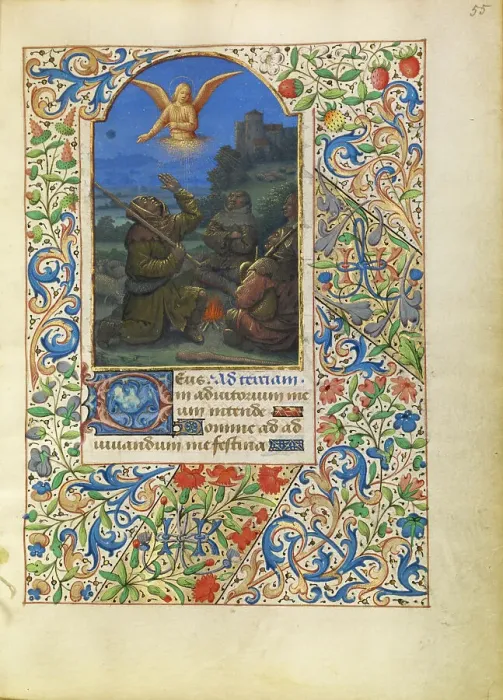 55
Eus. Ad terciam.
in adiutorium me
um intende
Domine ad ad
iuuandum me festina